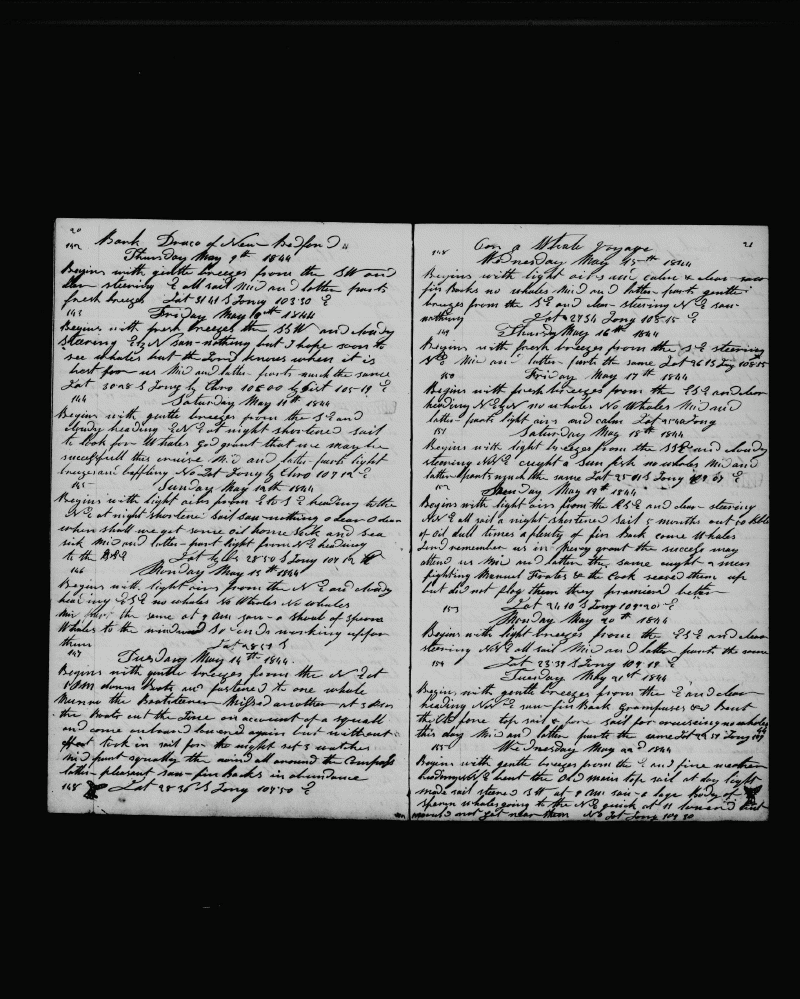 20
142 Bark Draco of New Bedford
Thursday May 9th 1844
Begins with gentle breezes from the SW and
clear steering E all sail Mid and latter parts
fresh breezes Lat 31 41 S Long 103 30 E
143 Friday May 10th 1844
Begins with fresh breezes the SSW and cloudy
Stearing EbN saw nothing but I hope soon to
see whales but the Lord knows when it is
best for us Mid and latter parts much the same
Lat 30 28 S Long by Chro 106 00 by 105 19 E
144 Saturday May 11th 1844
Begins with gentle breezes from the SE and
cloudy heading ENE at night shortened sail
to look for Whales god grant that we may be
successfull this cruise Mid and latter parts light
breezes and baffling No Lat Long by Chro 107 12 E
145 Sunday May 12th 1844
Begins with light airs from E to SE heading to the
NE at night shortened sail saw nothing o dear o dear
when shall we get some oil home sick and sea
sick Mid and latter part light from NE heading
to the Lat by 28 50 S Long
146 Monday May 13th 1844
Begins with light airs from the NE and cloudy
heading ESE no whales No Whales No whales
Mid the same at 9 AM saw a shoal of Sperm
Whales to the windward So ends working up for
them Lat
147 Tuesday May 14th 1844
Begins with gentle breezes from the N E at
1 PM down Boats and fastened to one whale
the Boatsteerer Missed another at
the Boats cut the Line on account of a squall
and come onboard lowered again but without
effect took in sail for the night set watches
Mid part squally the wind all around the Compass
latter pleasant saw fin Backs in abundance
148 Lat 28 36 S Long 107 50 E
21
148 On a Whale Voyage
Wednesday May 15th 1844
Begins with light airs and calm & clear saw
fin Backs no whales Mid and latter parts gentle
breezes from the SE and clear steering NE saw
nothing Lat 27 54 Long 108 15 E
149 Thursday May 16th 1844
Begins with fresh breezes from the SE steering
Mid and latter parts the same Lat 26 13 Long 108 15
150 Friday May 17th 1844
Begins with fresh breezes from the ESE and clear
heading NEbN no whales No Whales Mid and
latter parts light airs and calm Lat Long
151 Saturday May 18th 1844
Begins with light breezes from the SSE and cloudy
steering NNE caught a Sun fish no whales Mid and
latter parts much the same Lat 25 01 S Long 109 07 E
152 Sunday May 19th 1844
Begins with light airs from the ESE and clear steering
NNE all sail a night shortened sail 5 months out 60 bbls
of Oil dull times a plenty of fin Back come Whales
Lord remember us in Mercy grant the success may
attend us Mid and latter the same caught 2 men
fighting Manuel & the Cook seased them up
but did not flog them they promised better
153 Lat 24 10 S Long 109 20 E
Monday May 20th 1844
Begins with light breezes from the ESE and clear
steering NNE all sail Mid and latter parts the same
154 Lat 23 39 S Long 109 19 E
Tuesday May 21st 1844
Begins with gentle breezes from the E and clear
heading NNE saw fin Back Grampuses and Bent
the Old fore top sail & fore sail for cruising no whales
this day Mid and latter parts the same Lat Long
155 Wednesday May 22nd 1844
Begins with gentle breezes from the E and fine weather
heading NNE bent the Old main top sail at day light
made sail steered SW at 9 AM saw a large body of
Sperm whales going to the NE quick at 11 lowered but
could not get near them No Lat Long